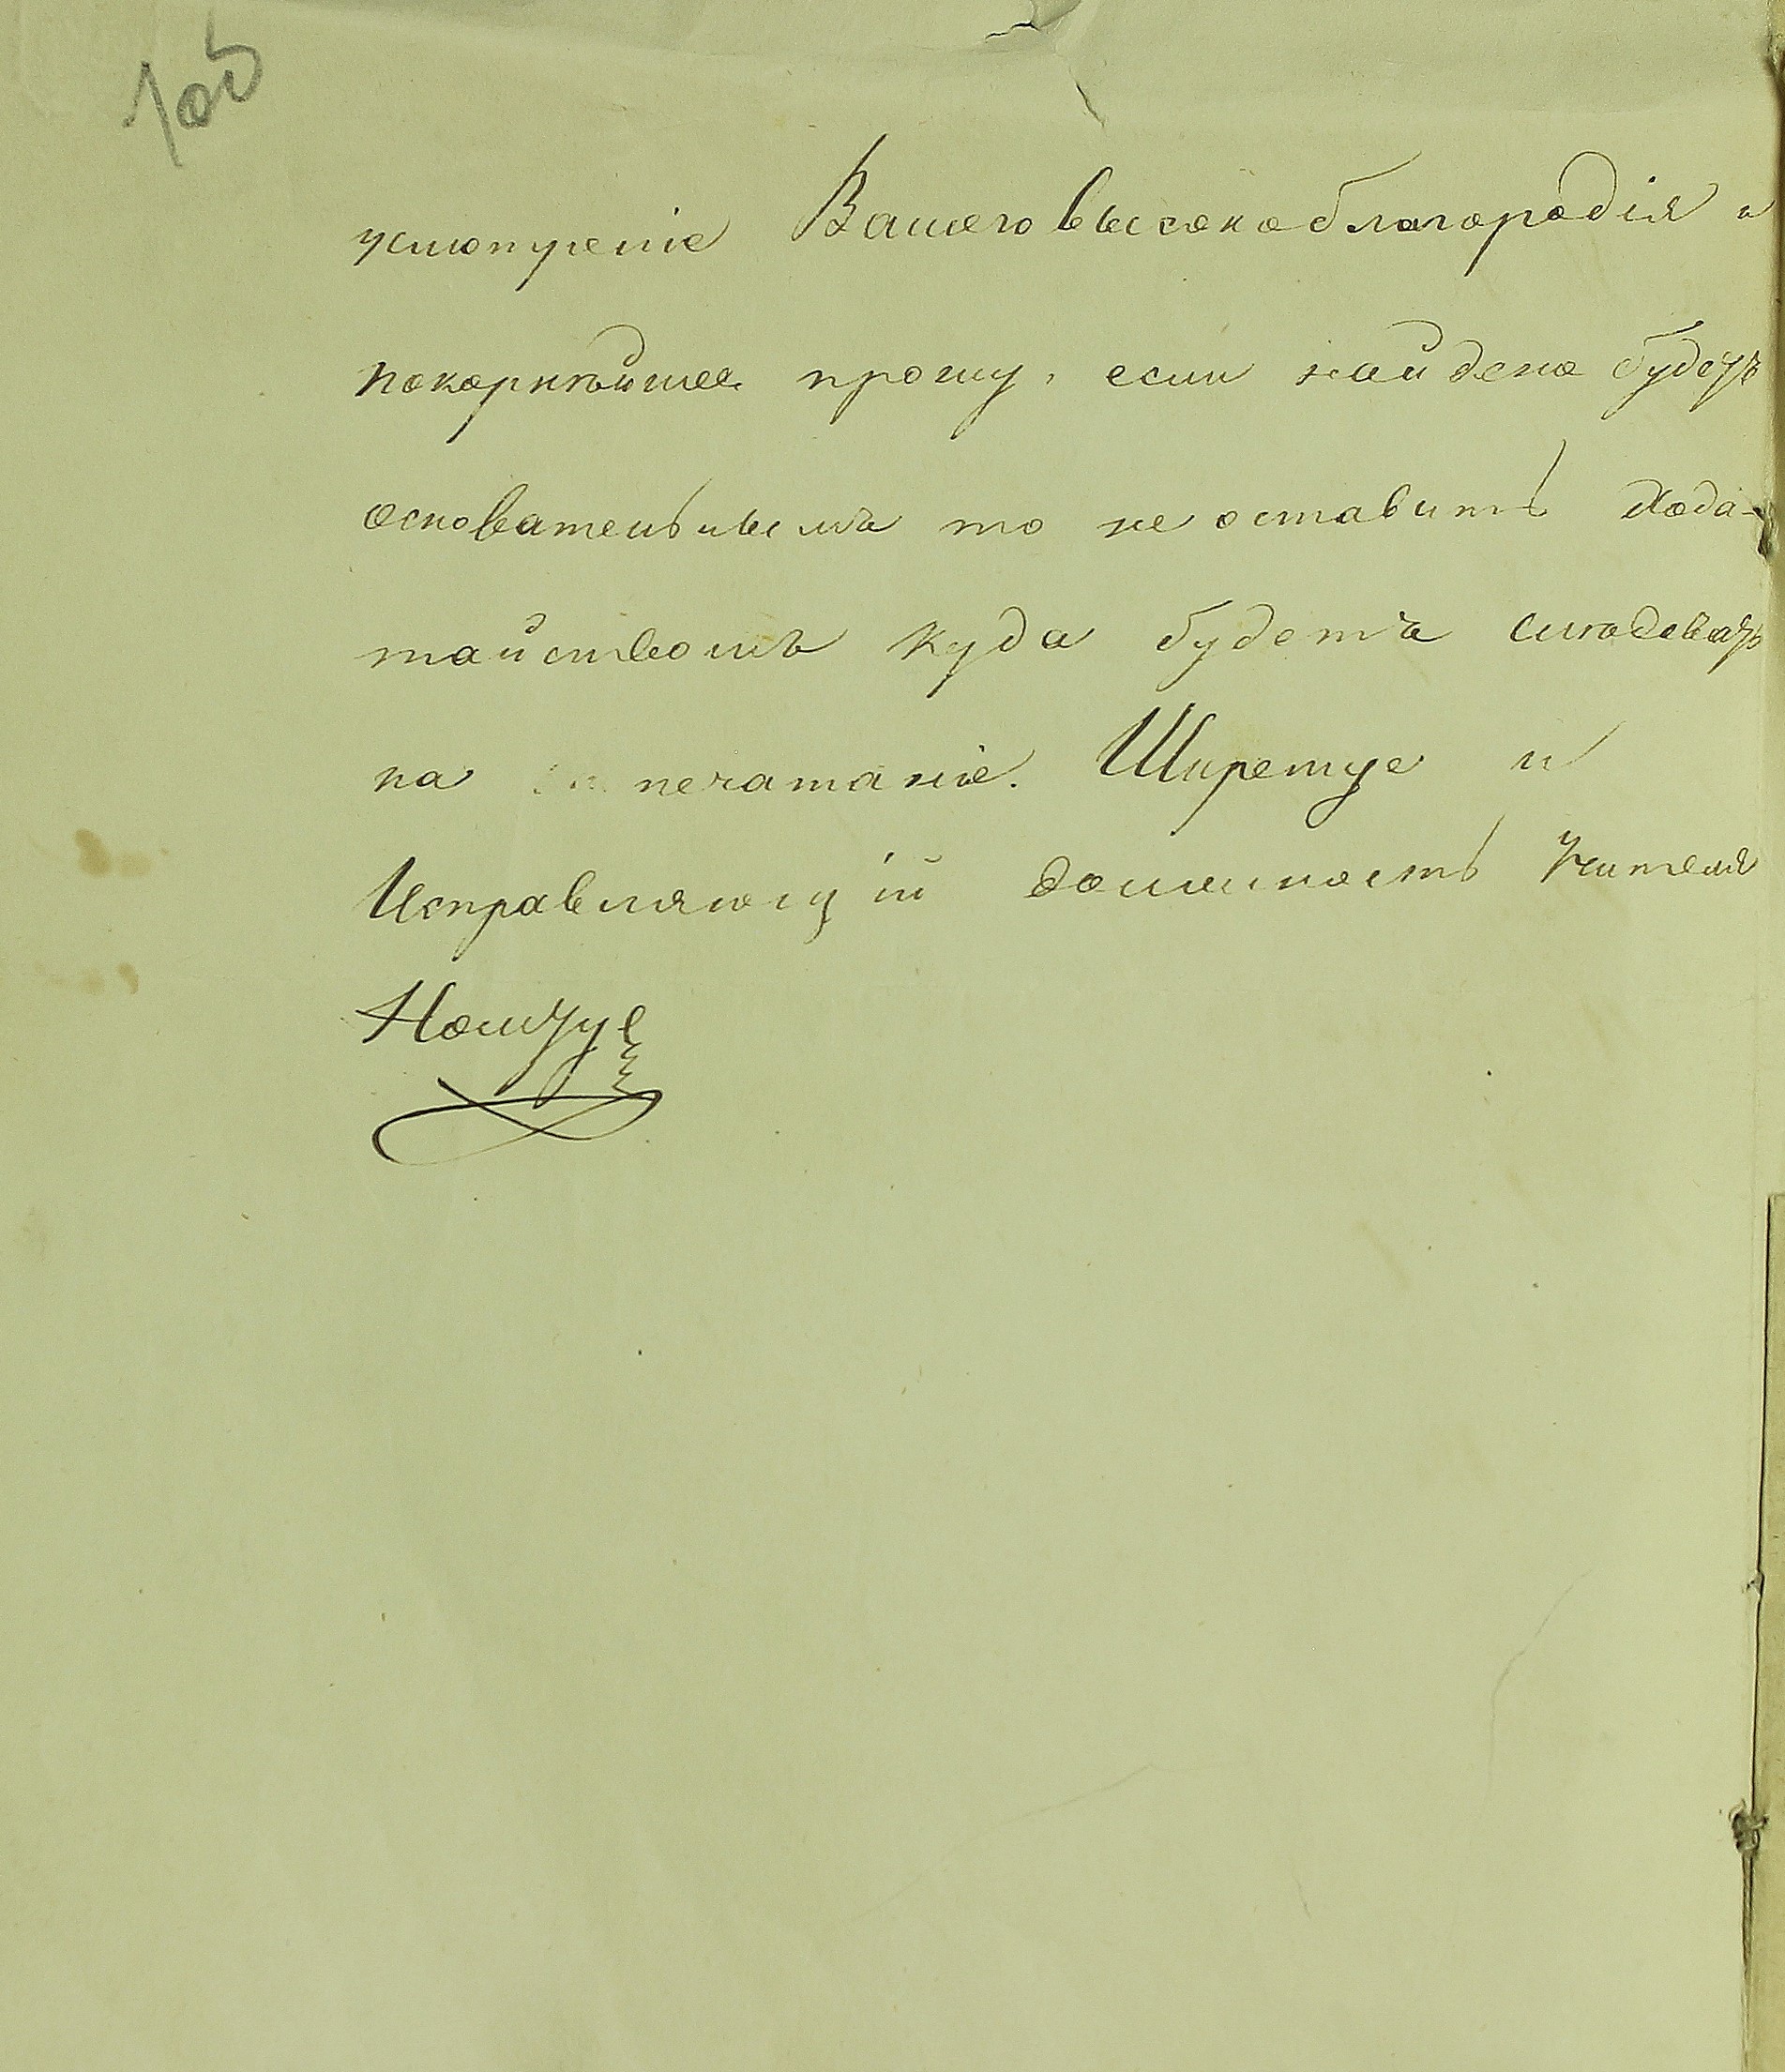 усмотреніе Вашего высокоблагородія и
покорнѣйше прошу, если найдено будетъ
основательнымъ то не оставить хода-
тайствомъ куда будетъ слѣдовать
на печатаніе. Ширетуе и
Исправляющій должность Учителя